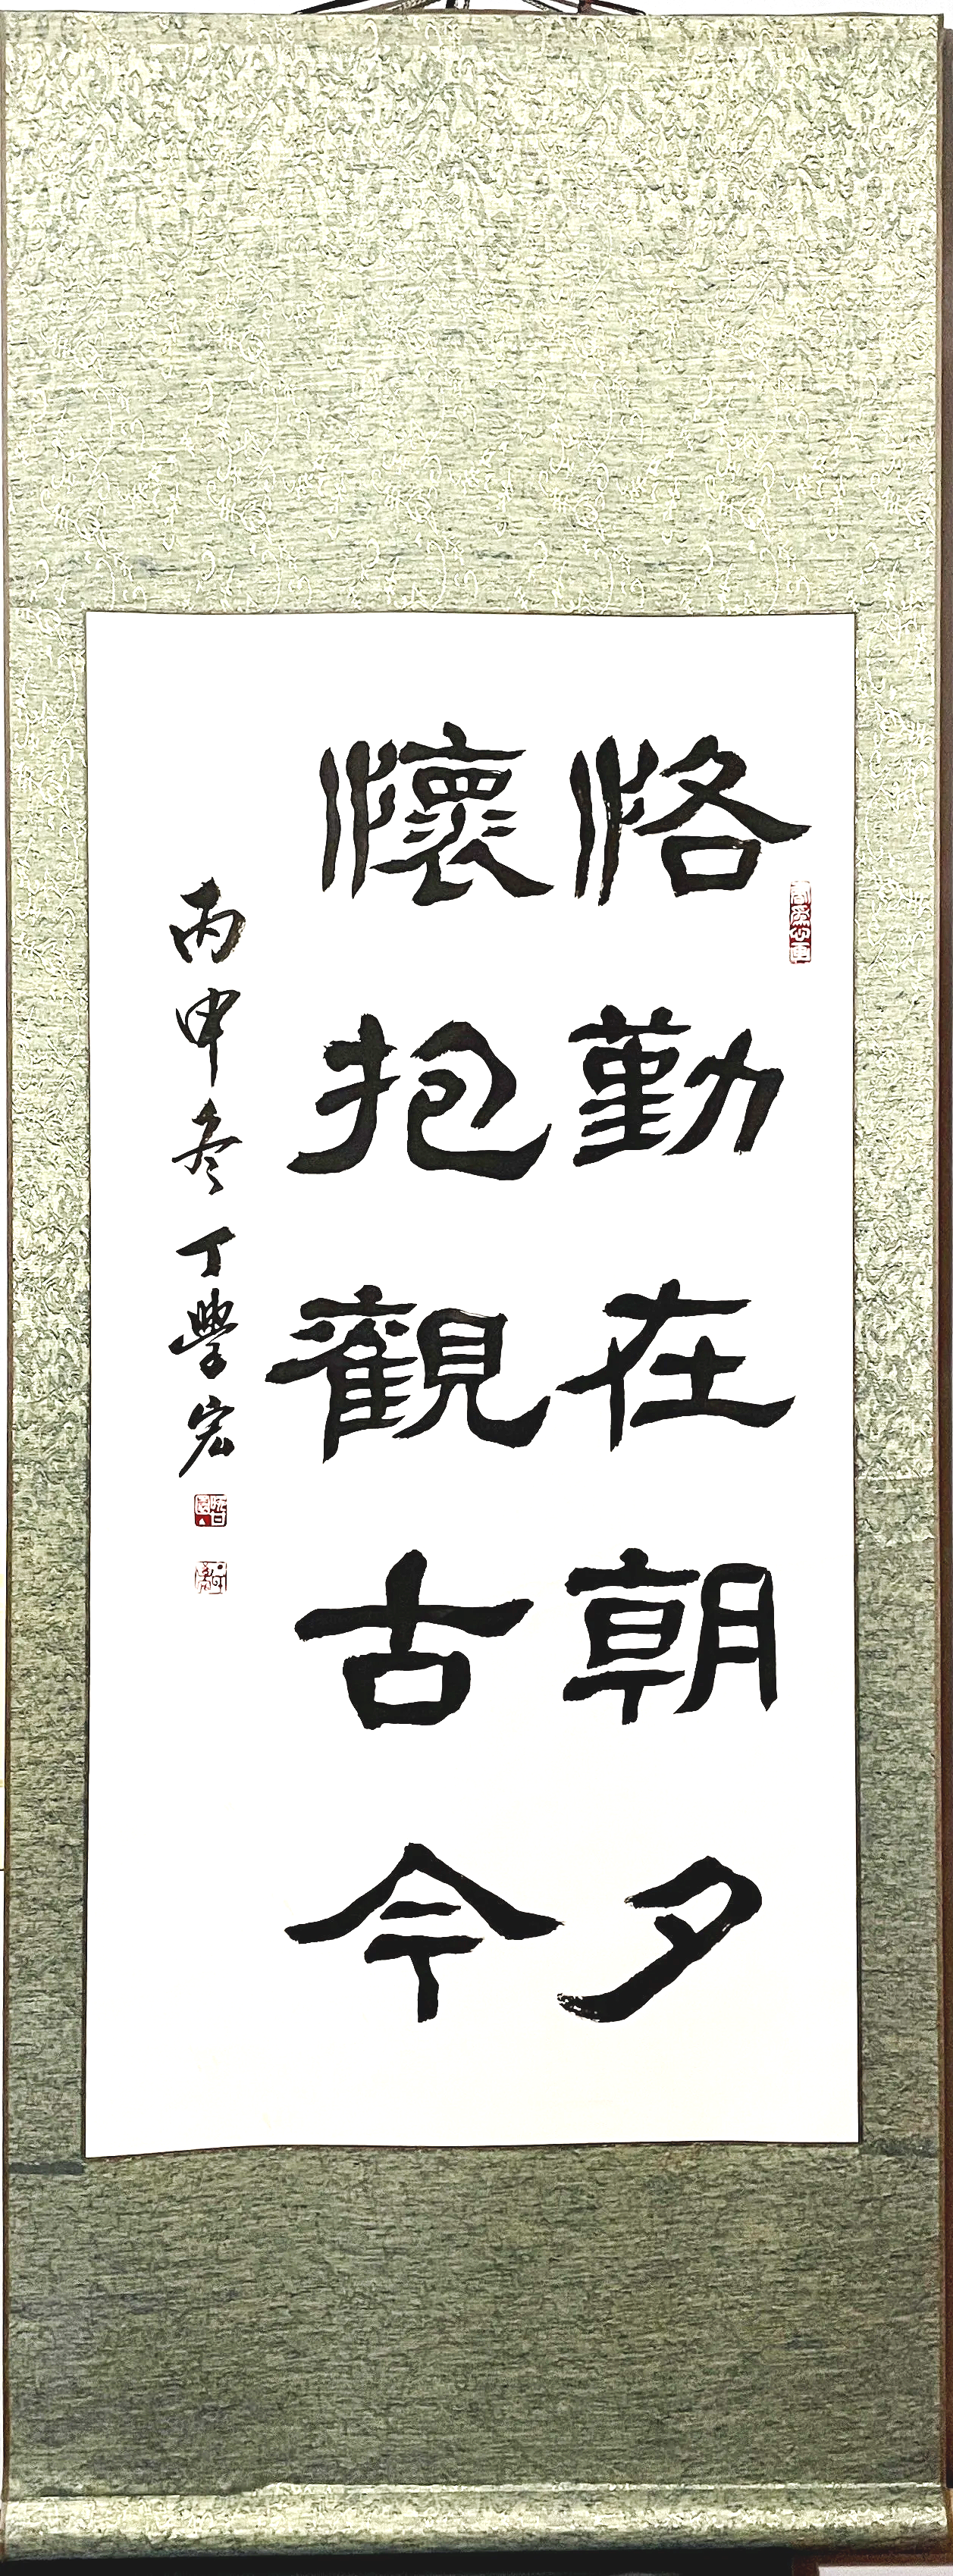 恪勤在朝夕
懷抱觀古今
丙申冬丁學宏